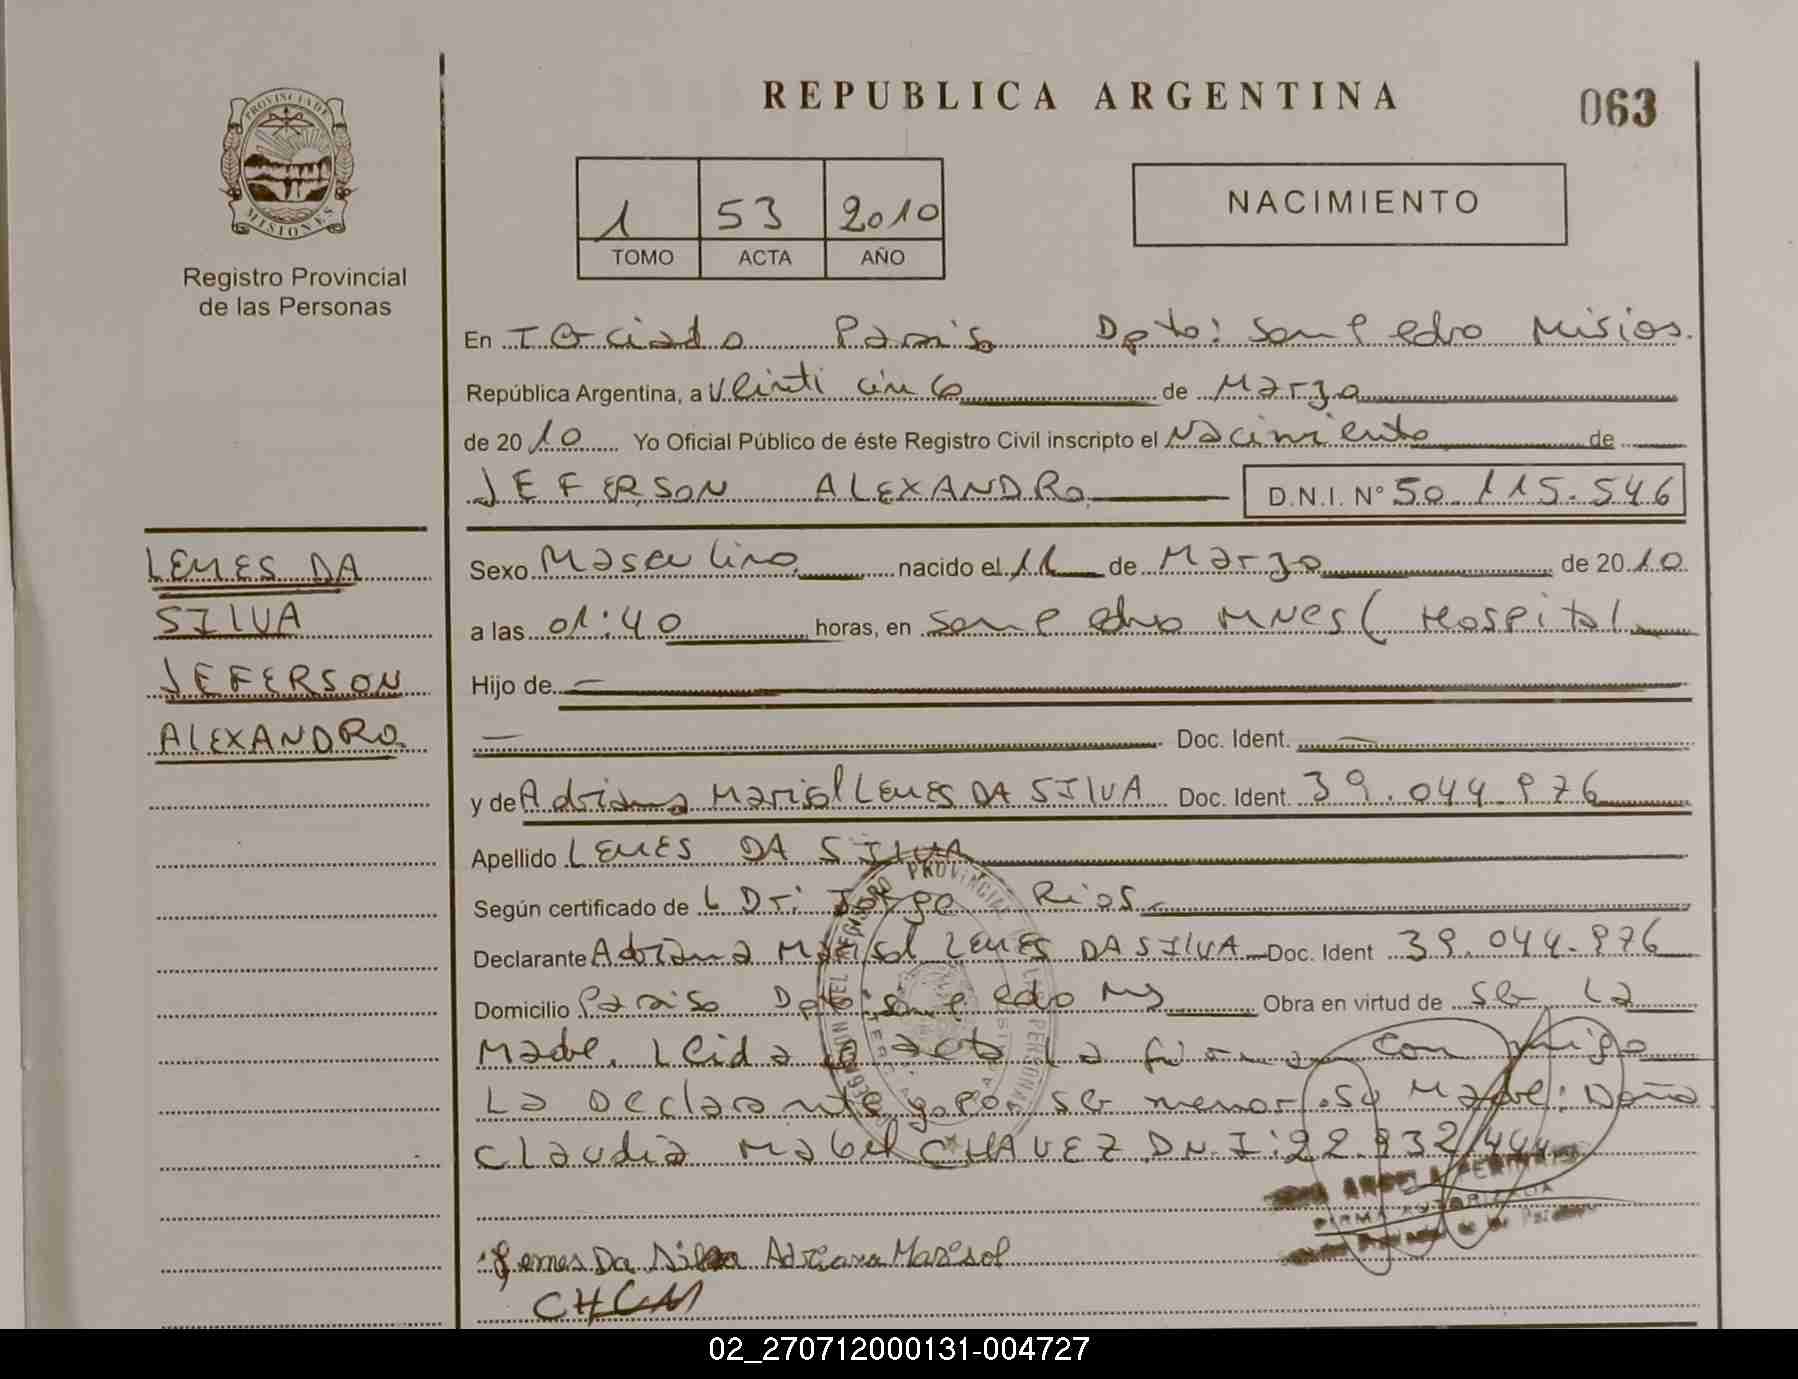 REPUBLICA ARGENTINA
063
PROVINCIA DE
MISIONES
Registro Provincial
de las Personas
1 53 2010
TOMO ACTA AÑO
NACIMIENTO
En Terciado Paraiso Dpto: San Pedro Misios.
República Argentina, a Veinti cinco de Marzo
de 2010 Yo Oficial Público de éste Registro Civil inscripto el Nacimiento de
JEFERSON ALEXANDRO D.N.I. N° 50.115.546
LEMES DA
SILVA
JEFERSON
ALEXANDRO
Sexo Masculino nacido el 11 de Marzo de 2010
a las 01:40 horas, en San Pedro MNES ( Hospital
Hijo de
Doc. Ident.
y de Adriana Marisol LEMES DA SILVA Doc. Ident. 39.044.976
Apellido LEMES DA SILVA
Según certificado de L Dr: Jorge Rios
Declarante Adriana Marisol LEMES DA SILVA Doc. Ident 39.044.976
Domicilio Paraiso Dpto: San Pedro Obra en virtud de ser La
Madre. Leida acta la firma con migo
La Declarante y por ser menor su Madre: Doña
Claudia Mabel CHAVEZ D.N.I: 22.932.444
FIRMA AUTORIZADA
Lemes Da Silva Adriana Marisol
CHCM
02_270712000131-004727